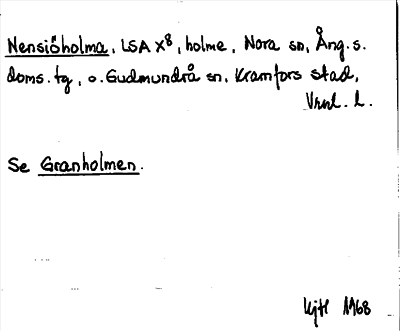 Nensiöholma, LSA X8, holme, Nora sn, Ång. s.
doms. tg, o. Gudmundrå sn, Kramfors stad,
Vrnl. l.
Se Granholmen.
1968